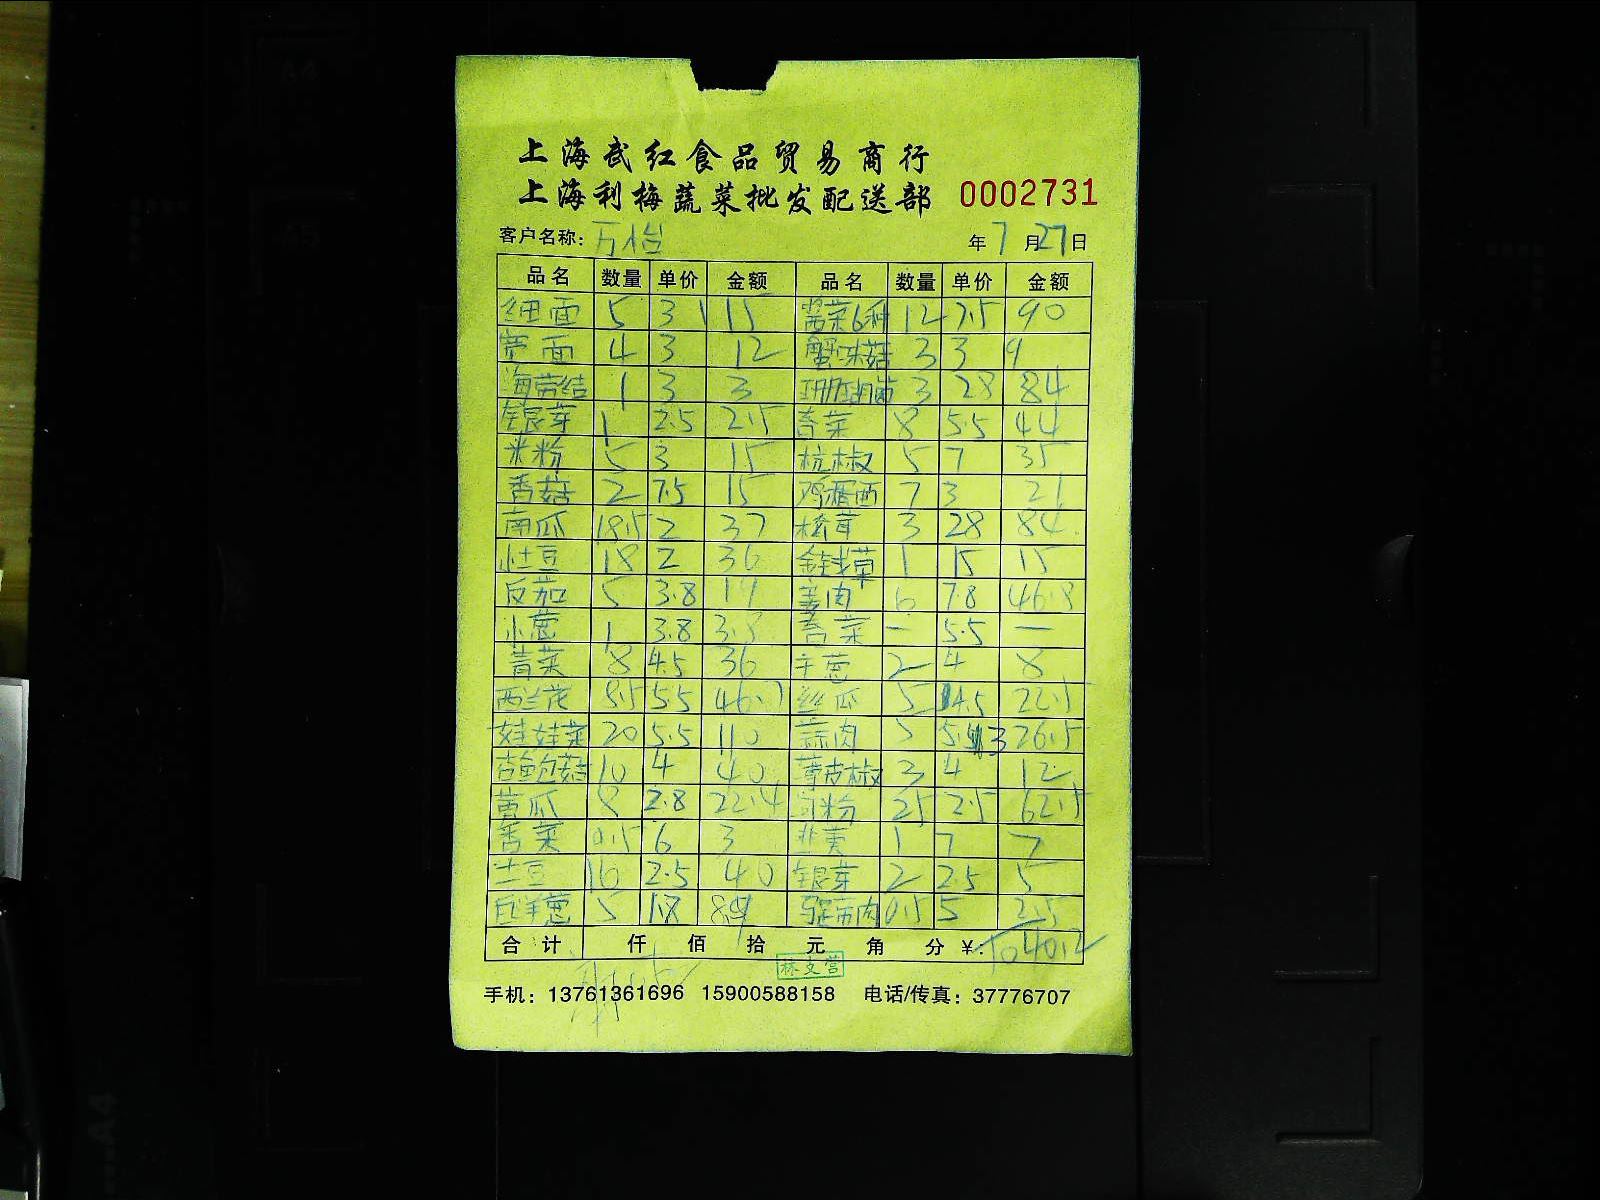 上海武红食品贸易商行
上海利梅蔬菜批发配送部 0002731
客户名称: 万怡 年 7 月 27 日
品名 数量 单价 金额 品名 数量 单价 金额
细面 5 3 15 酱菜6种 12 7.5 90
宽面 4 3 12 蟹味菇 3 3 9
海带结 1 3 3 珊瑚菌 3 28 84
银芽 1 2.5 2.5 苔菜 8 5.5 44
米粉 5 3 15 杭椒 5 7 35
香菇 2 7.5 15 7 3 21
南瓜 18.5 2 37 3 28 84
小土豆 18 2 36 金钱草 1 15 15
反茄 5 3.8 19 姜肉 6 7.8 46.8
小葱 1 3.8 3.8 苔菜 — 5.5 —
青菜 8 4.5 36 羊葱 2 4 8
西兰花 8.5 5.5 46.7 丝瓜 5 4.5 22.5
娃娃菜 20 5.5 110 蒜肉 5 5.3 26.5
杏鲍菇 10 4 40 薄皮椒 3 4 12
黄瓜 8 2.8 22.4 河粉 25 2.5 62.5
香菜 0.5 6 3 韭黄 1 7 7
土豆 16 2.5 40 银芽 2 2.5 5
白洋葱 5 1.8 8.9 0.5 5 2.5
合计 仟 佰 拾 元 角 分 ¥: 1040.2
林文营
手机：13761361696 15900588158 电话/传真：37776707